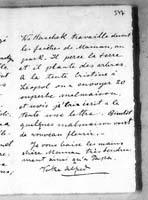 Va Haschek travaille devant
les fenêtres de Maman, au
park. Il perce la terre
et il plante des arbres
à la tente Cristine à
Leopol on a envoyé 20
superbe malmaison,
et moi j'ai écrit à la
tente une lettre. Bientôt
quelques malmaison vont
de nouveau fleurir.
Je vous baise les mains
chère Maman très tendre-
ment ainsi qu'à Papa.
Votre Alfred